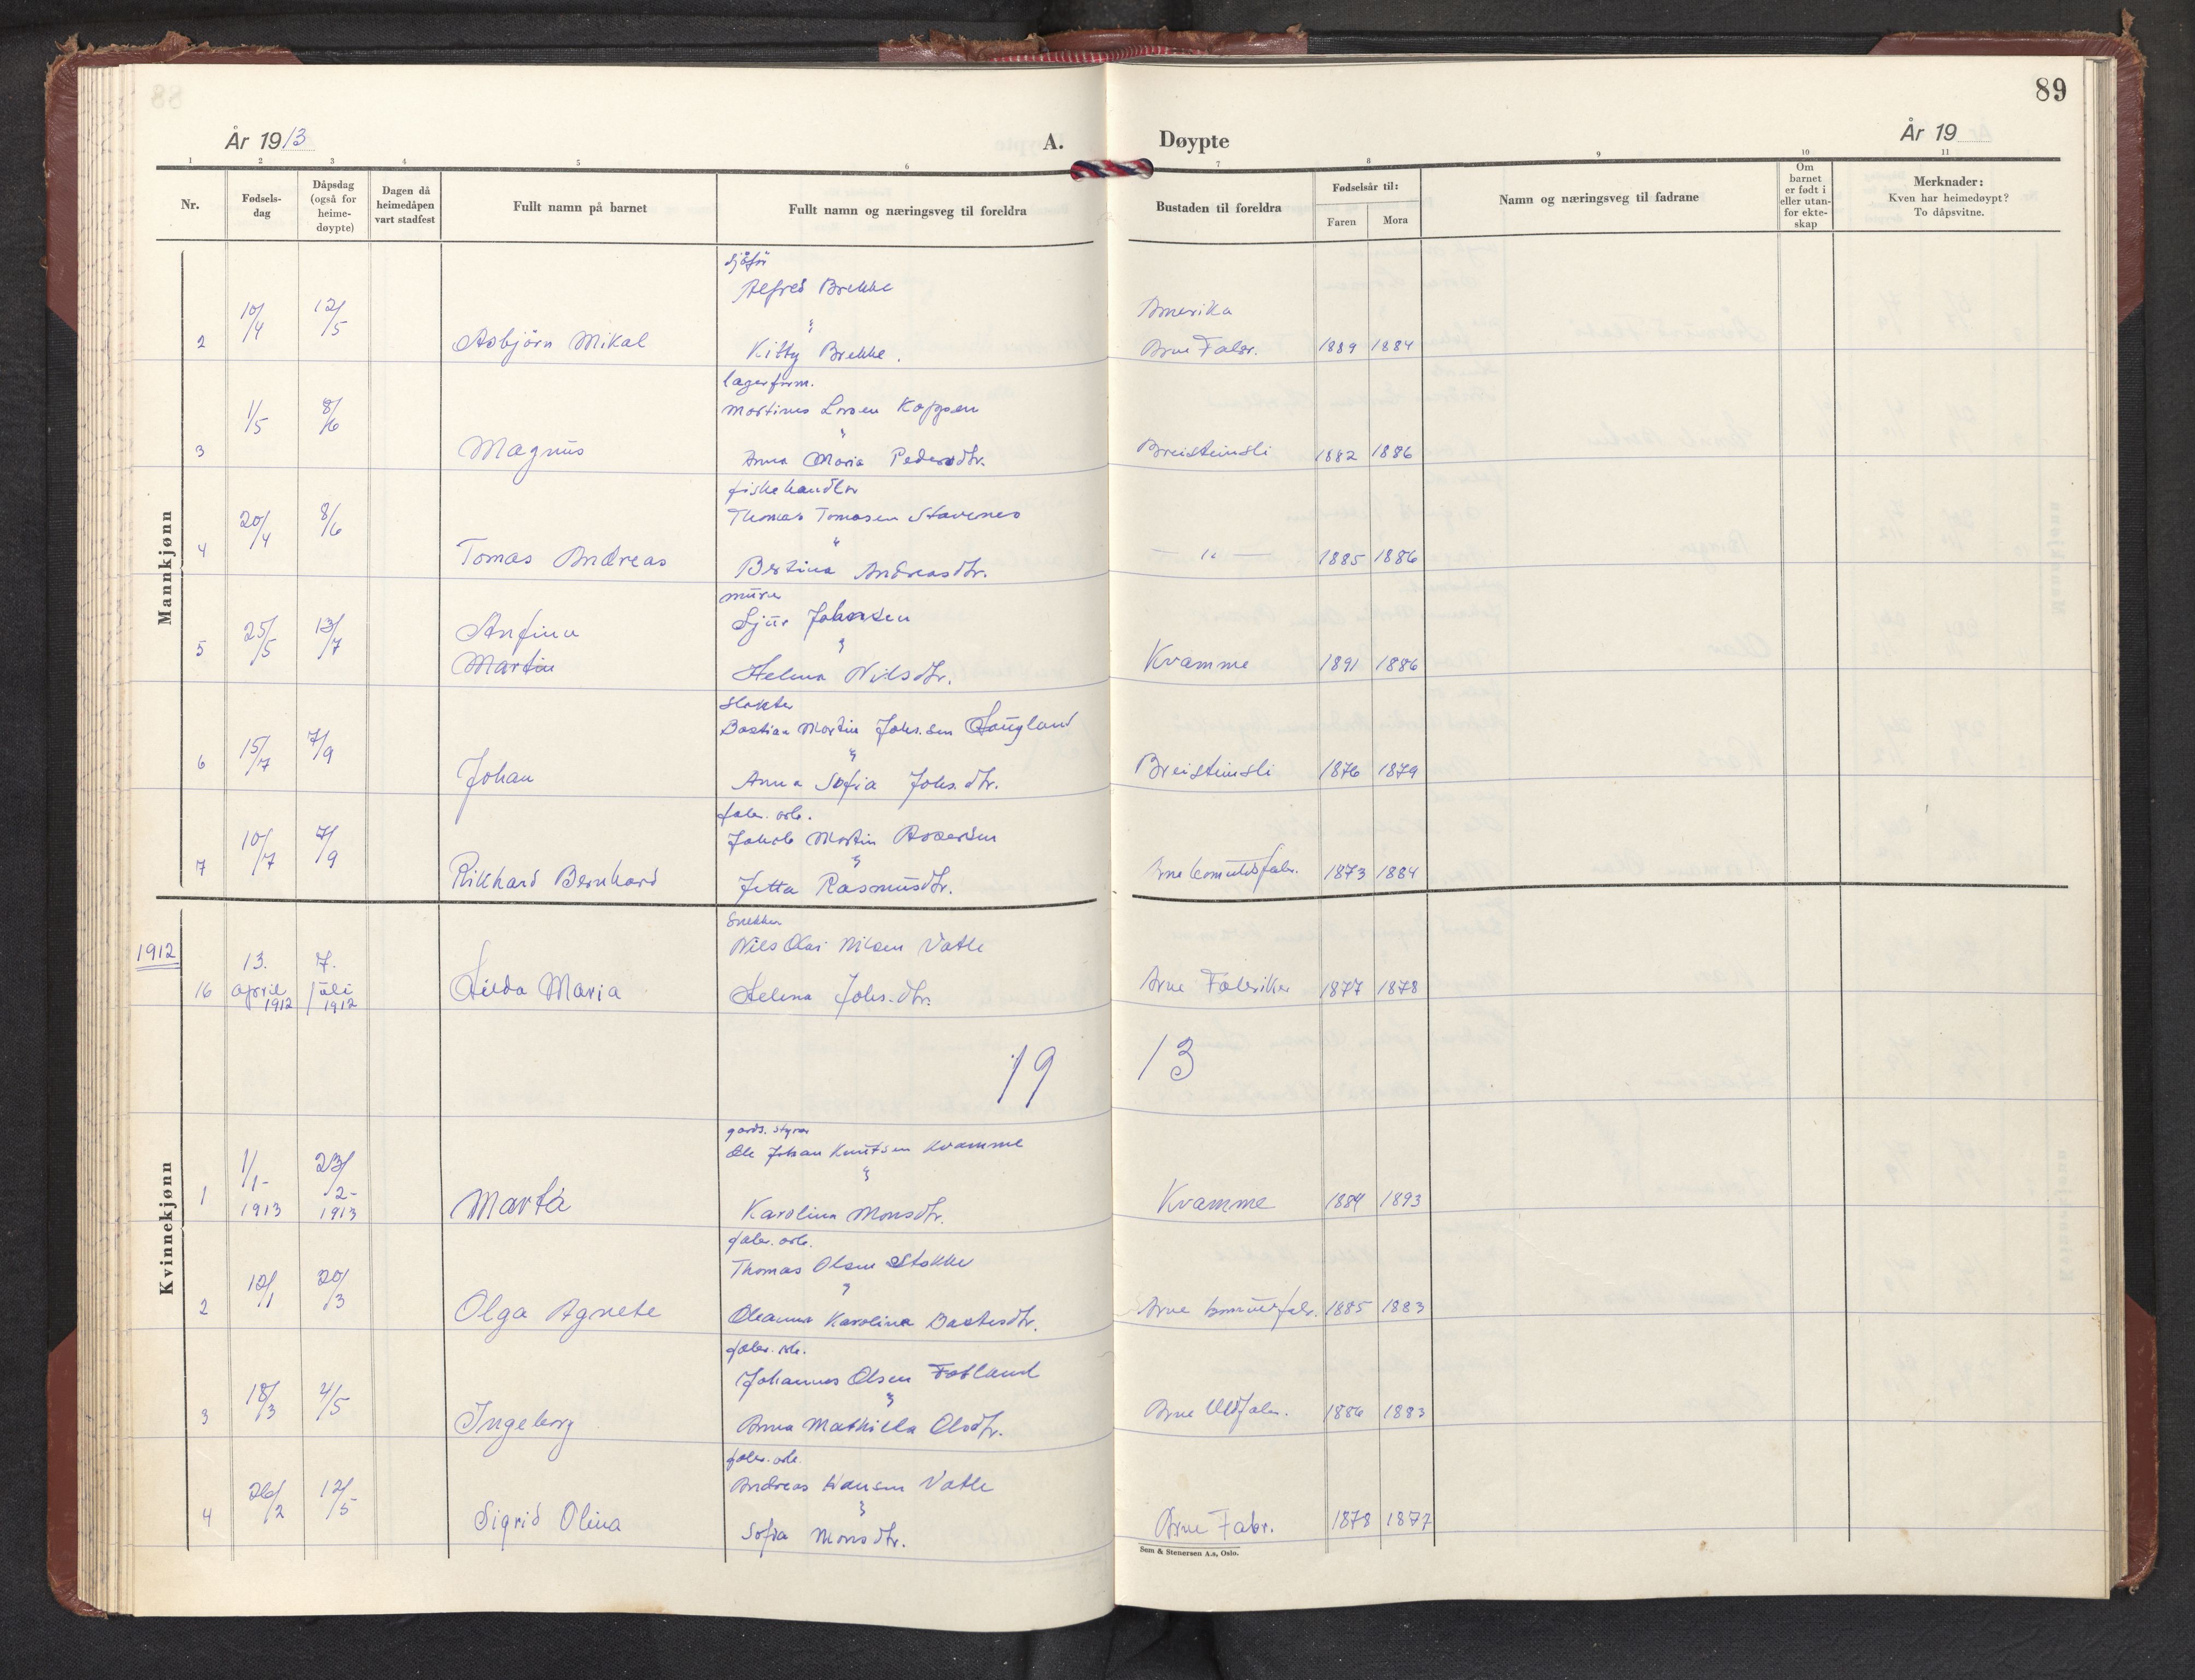 89
År 1913
A.
Døypte
År 19
1 2 3 4 5 6 7 8 9 10 11
Nr.
Fødsels-
dag
Dåpsdag
(også for
heime-
døypte)
Dagen då
heimedåpen
vart stadfest
Fullt namn på barnet
Fullt namn og næringsveg til foreldra
Bustaden til foreldra
Fødselsår til:
Faren Mora
Namn og næringsveg til fadrane
Om
barnet
er født i
eller utan-
for ekte-
skap
Merknader:
Kven har heimedøypt?
To dåpsvitne.
Mannkjønn
sjåfør
Alfred Brekke
Amerika
2 10/4 12/5 Asbjörn Mikal Kitty Brekke. Arne Fabr. 1889 1884
lagerform.
Martines Larsen Kappen
3 1/5 8/6 Magnus Anna Maria Pedersdtr. Breisteinsli 1882 1886
fiskehandlar
Thomas Tomasen Stavenes
4 20/4 8/6 Tomas Andreas Bertina Andreasdtr. — " — 1885 1886
murer
Sjur Johansen
Anfinn
5 25/5 13/7 Martin Helena Nilsdtr. Kvamme 1891 1886
slakter
Bastian Martin Johs.sen Haugland
6 15/7 7/9 Johan Anna Sofia Johs.dtr. Breisteinsli 1876 1879
fabr. arb.
Jakob Martin
7 10/7 7/9 Rikhard Bernhard Jetta Rasmusdtr. 1873 1884
1912
Snekker
Nils Olai Nilsen Vatle
16 13. april 1912 7. juli 1912 Hilda Maria Helena Johs.dtr. Arne Fabrikker 1877 1878
19 13
Kvinnekjønn
gards. styrar
Ole Johan Knutsen Kvamme
1 1/1- 1913 23/2- 1913 Marta Karolina Monsdtr. Kvamme 1884 1893
fabr. arb.
Thomas Olsen Stokke
2 12/1 20/3 Olga Agnete Oleanna Karolina 1885 1883
fabr. arb.
Johannes Olsen Fotland
3 18/3 4/5 Ingeborg Anna Mathilda Olsdtr. Arne Uldfabr. 1886 1883
fabr. arb.
Andreas Hansen Vatle
4 26/2 12/5 Sigrid Olina Sofia Monsdtr. Arne Fabr. 1878 1877
Sem & Stenersen A.s, Oslo.